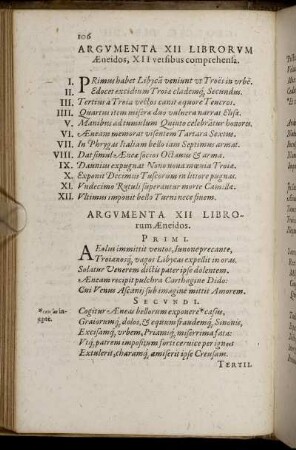 106
ARGVMENTA XII LIBRORVM
Æneidos, XII versibus comprehensa.
I. PRimus habet Libycã veniunt vt Troës in vrbẽ.
II. Edocet excidium Troiæ clademq́, Secundus.
III. Tertius a Troia vectos canit equore Teucros.
IIII. Quartus item miseræ duo vulnera narrat Elisæ.
V. Manibus ad tumulum Quinto celebrãtur honores.
VI. Æneam memorat visentem Tartara Sextus.
VII. In Phrygas Italiam bello iam Septimus armat.
VIII. Dat simul Æneæ socios Octauus & arma.
IX. Daunius expugnat Nono noua mœnia Troiæ.
X. Exponit Decimus Tuscorum in littore pugnas.
XI. Vndecimo Rutuli superantur morte Camillæ.
XII. Vltimus imponit bello Turni nece finem.
ARGVMENTA XII LIBRO-
rum Æneidos.
PRIMI.
AEolus immittit ventos, Iunone precante,
Troianosq́, vagos Libycas expellit in oras.
Solatur Venerem dictis pater ipse dolentem.
Æneam recipit pulchra Carthagine Dido:
Cui Venus Ascanij sub imagine mittit Amorem.
SECVNDI.
Cogitur Æneas bellorum exponere * casus,
Graiorumq́, dolos, & equum fraudemq́, Sinonis,
Excisamq́, vrbem, Priamiq́, miserrima fata:
Vtq́, patrem impositum forti ceruice per ignes
Extulerit, charamq́, amiserit ipse Creusam.
TERTII.